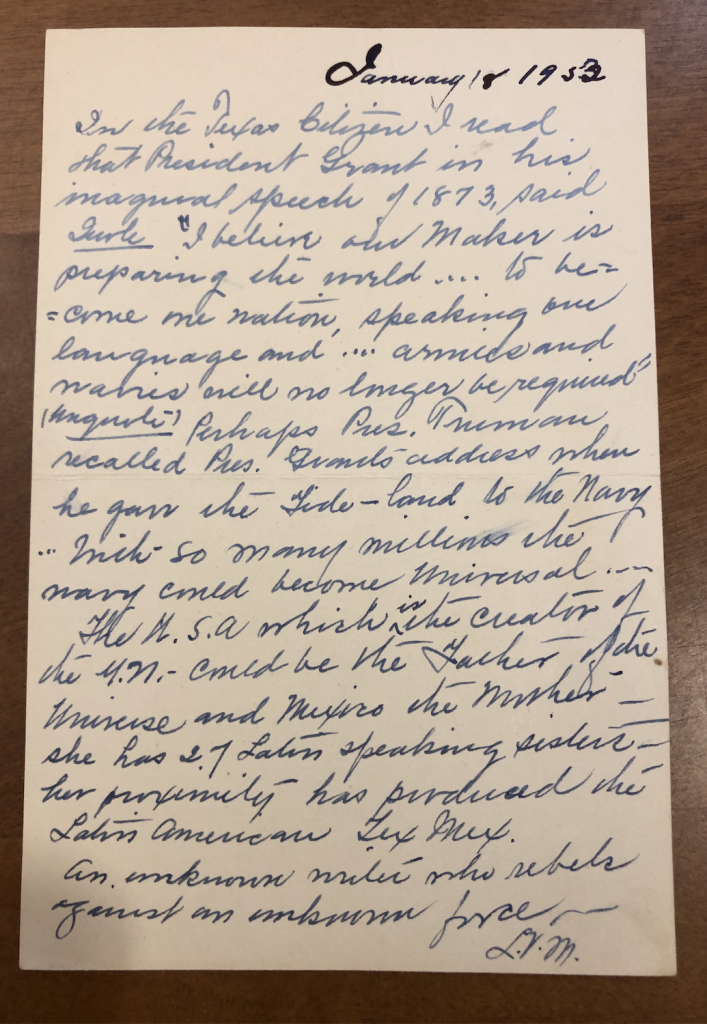 January 18 1953
In the Texas Citizen I read
that President Grant in his
inagural speech of 1873, said
"I believe our Maker is
preparing the world .... to be=
=come one nation, speaking one
language and .... armies and
navies will no longer be required"
(unquote) Perhaps Pres. Truman
recalled Pres. Grants address when
he gave the Tide-land to the Navy
... With so many millions the
navy could become Universal ...
The U.S.A which is the creator of
the U.N.- could be the Father of the
Universe and Mexico the Mother -
she has 27 Latin speaking sisters -
her proximity has produced the
Latin American Tex Mex.
An unknown writer who rebels
against an unknown force -
L.V.M.